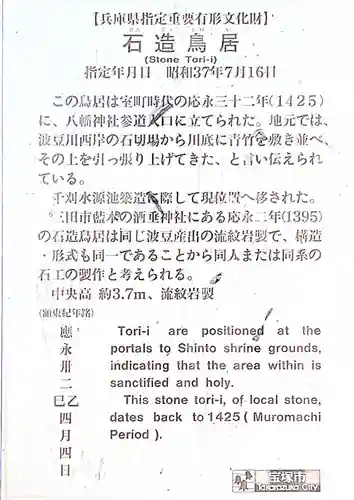 【兵庫県指定重要有形文化財】
石造鳥居
(Stone Tori-i)
指定年月日 昭和37年7月16日
この鳥居は室町時代の応永三十二年(1425)
に、八幡神社参道入口に立てられた。地元では、
波豆川西岸の石切場から川底に青竹を敷き並べ、
その上を引っ張り上げてきた、と言い伝えられ
ている。
千刈水源池築造に際して現位置へ移された。
三田市藍本の酒垂神社にある応永二年(1395)
の石造鳥居は同じ波豆産出の流紋岩製で、構造
・形式も同一であることから同人または同系の
石工の製作と考えられる。
中央高 約3.7m、流紋岩製
(額束紀年銘)
應永卅二
乙巳
四月四日
Tori-i are positioned at the
portals to Shinto shrine grounds,
indicating that the area within is
sanctified and holy.
This stone tori-i, of local stone,
dates back to 1425 ( Muromachi
Period ).
宝塚市
Takarazuka City